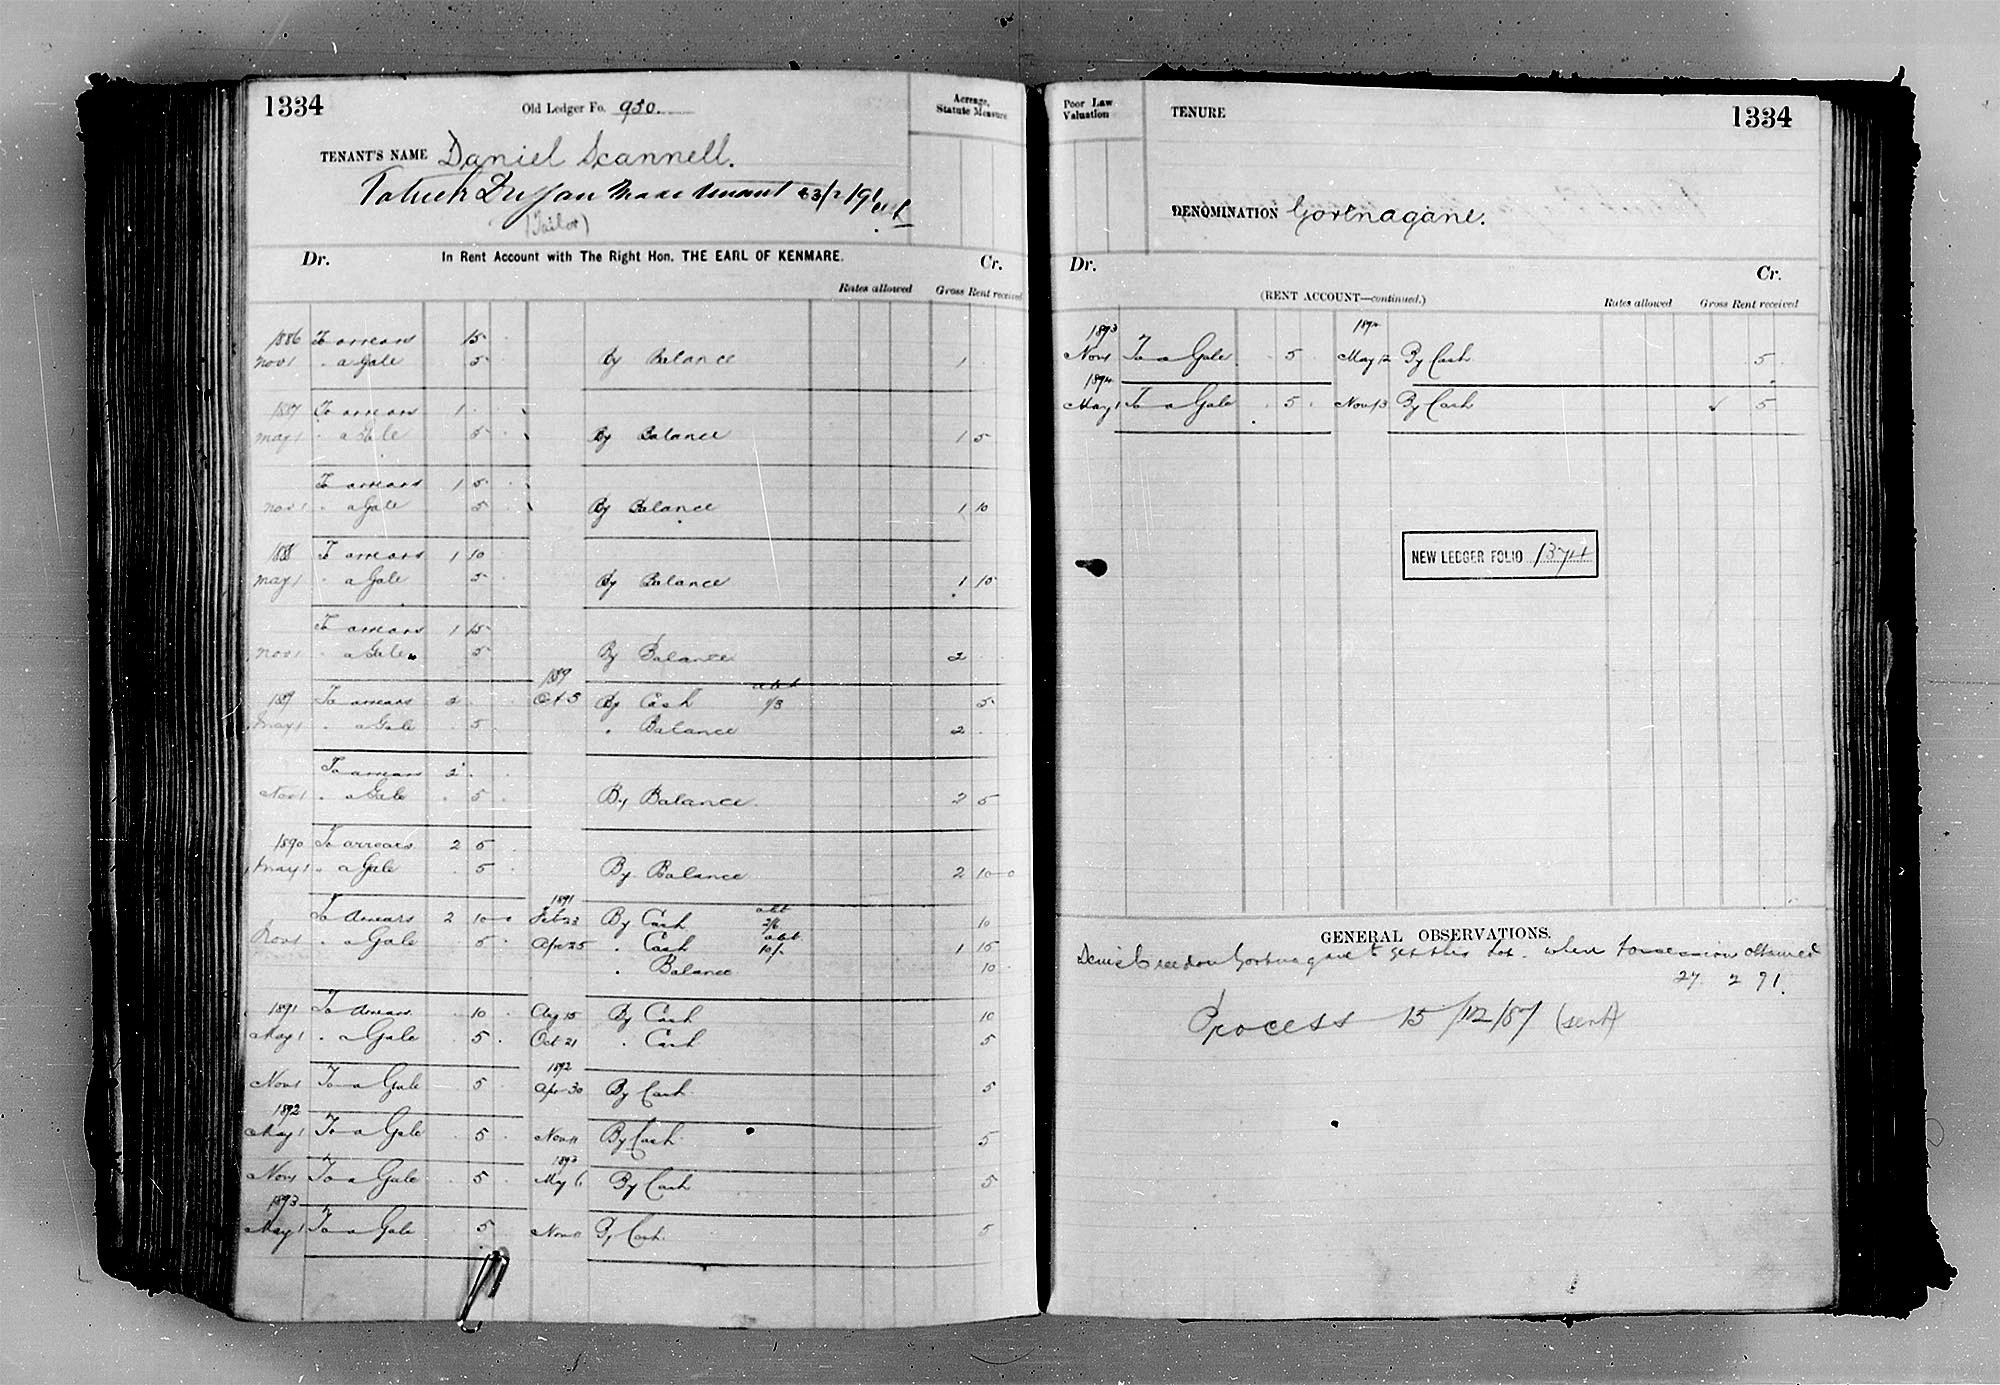 1334 Old Ledger Fo. 950. Acreage, Statute Measure
TENANT'S NAME Daniel Scannell.
Patrick Duggan made tenant 23/2/91
(Tailor)
Dr. In Rent Account with The Right Hon. THE EARL OF KENMARE. Cr.
Rates allowed Gross Rent received
1886 To arrears 15
Nov 1 " a Gale 5 By Balance 1
1887 To arrears 1
May 1 " a Gale 5 By Balance 1 5
To arrears 1 5
Nov 1 " a Gale 5 By Balance 1 10
1888 To arrears 1 10
May 1 " a Gale 5 By Balance 1 15
To arrears 1 15
Nov 1 " a Gale 5 By Balance 2
1889
1889 To arrears 2 Oct 5 By Cash abt 1/3 5
May 1 " a Gale 5 " Balance 2
To arrears 2
Nov 1 " a Gale 5 By Balance 2 5
1890 To arrears 2 5
May 1 " a Gale 5 By Balance 2 10 0
1891
To Arrears 2 10 0 Feb 23 By Cash abt 2/6 10
Nov 1 " a Gale 5 Apr 25 " Cash abt 10/- 1 15
" Balance 10
1891 To Arrears 10 Aug 15 By Cash 10
May 1 " a Gale 5 Oct 21 " Cash 5
1892
Nov 1 To a Gale 5 Apr 30 By Cash 5
1892
May 1 To a Gale 5 Nov 11 By Cash 5
1893
Nov 1 To a Gale 5 May 6 By Cash 5
1893
May 1 To a Gale 5 Nov By Cash 5
Poor Law Valuation TENURE 1334
DENOMINATION Gortnagane.
Dr. Cr.
(RENT ACCOUNT—continued.) Rates allowed Gross Rent received
1893 1894
Nov 1 To a Gale 5 May 12 By Cash 5
1894
May 1 To a Gale 5 Nov 13 By Cash ✓ 5
NEW LEDGER FOLIO 1374
GENERAL OBSERVATIONS.
Denis Creedon Gortnagane to get this hos. when Possession obtained
27 2 91.
Process 15/12/87 (sent)